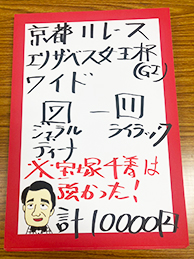 京都11レース
エリザベス女王杯(GI)
ワイド
7 — 11
ジェラル
ディーナ
ライラック
※宝塚4着は
強かった!
計10000円